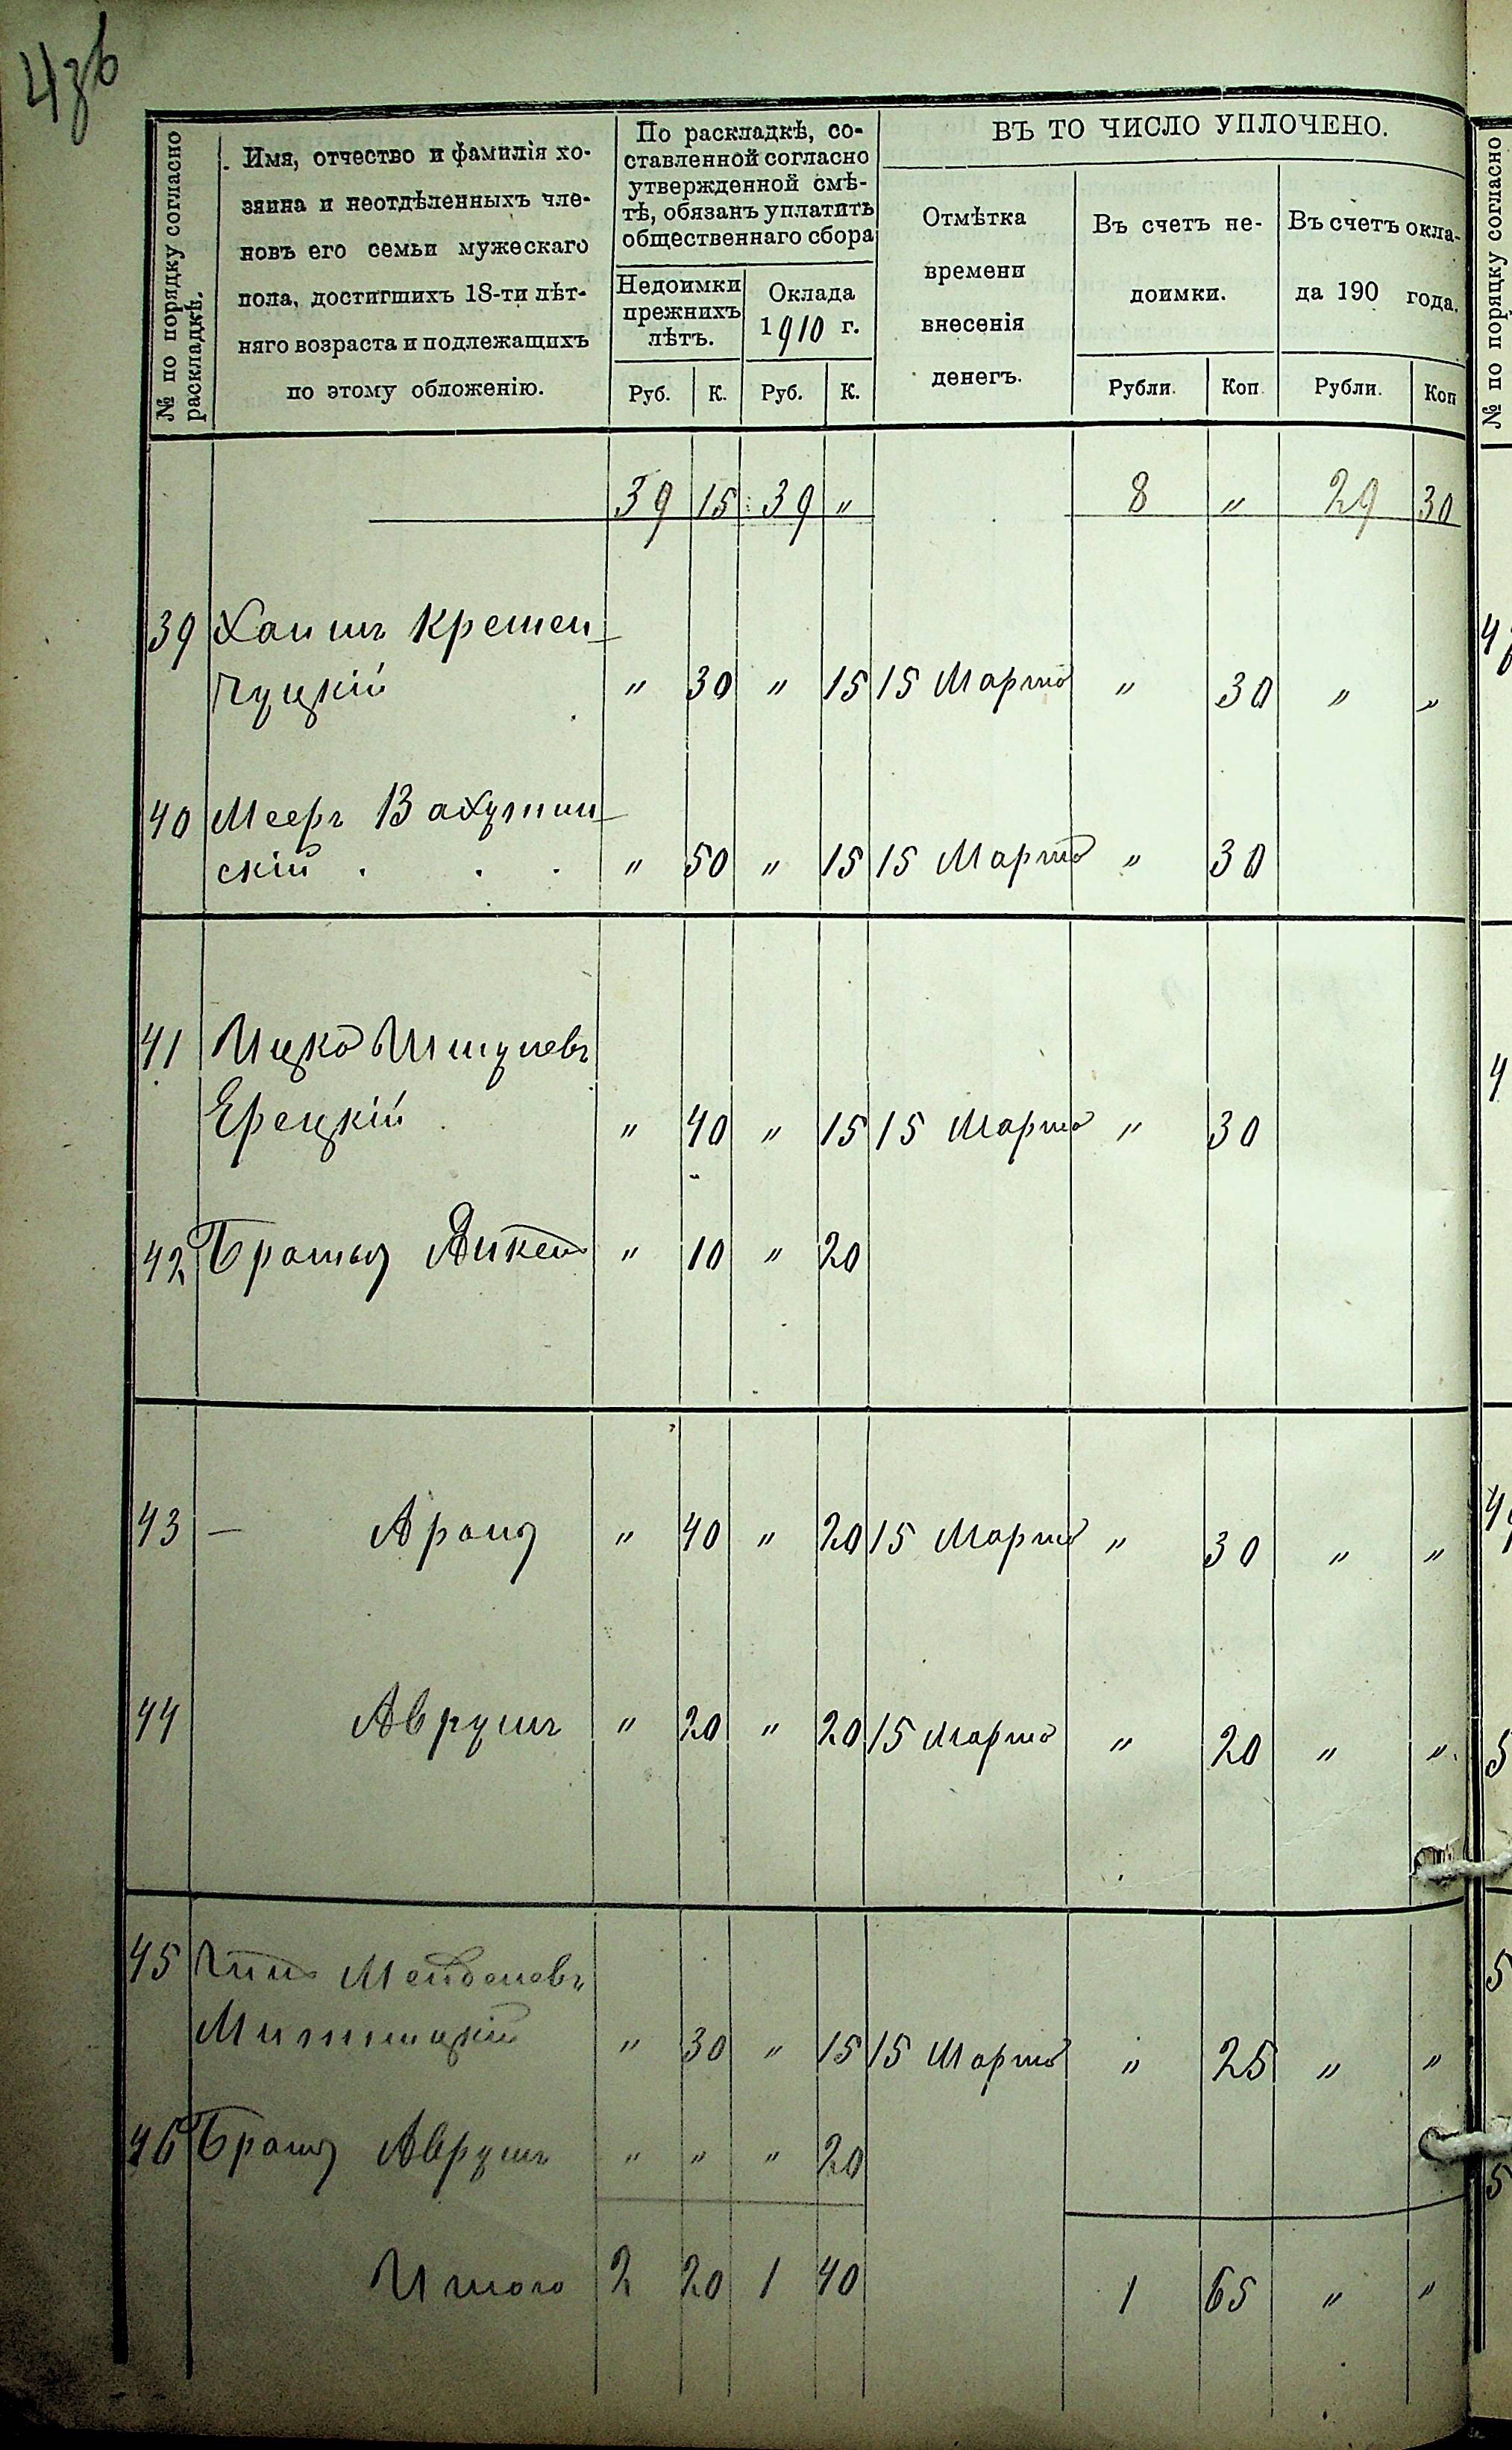 43б
№ по порядку согласно раскладкѣ.
Имя, отчество и фамилія хо-
зяина и неотдѣленныхъ чле-
новъ его семьи мужескаго
пола, достигшихъ 18-ти лѣт-
няго возраста и подлежащихъ
по этому обложенію.
По раскладкѣ, со-
ставленной согласно
утвержденной смѣ-
тѣ, обязанъ уплатить
общественнаго сбора
Недоимки
прежнихъ
лѣтъ.
Оклада
1910 г.
Руб. К. Руб. К.
ВЪ ТО ЧИСЛО УПЛОЧЕНО.
Отмѣтка
времени
внесенія
денегъ.
Въ счетъ не-
доимки.
Въ счетъ окла-
да 190 года.
Рубли. Коп. Рубли. Коп
39 15 39 " 8 " 29 30
39 Хаимъ Кремен-
чуцкій " 30 " 15 15 Марта " 30 " "
40 Мееръ Вахутин-
скій . . . " 50 " 15 15 Марта " 30
41 Ицко Шмулевъ
Ерецкій " 40 " 15 15 Марта " 30
42 Братья " 10 " 20
43 — Арона " 40 " 20 15 Марта " 30 " "
44 Аврумъ " 20 " 20 15 Марта " 20 " "
45 Менделевъ
" 30 " 15 15 Марта " 25 " "
46 Брата Аврумъ " " " 20
Итого 2 20 1 40 1 65 " "
№ по порядку согласно